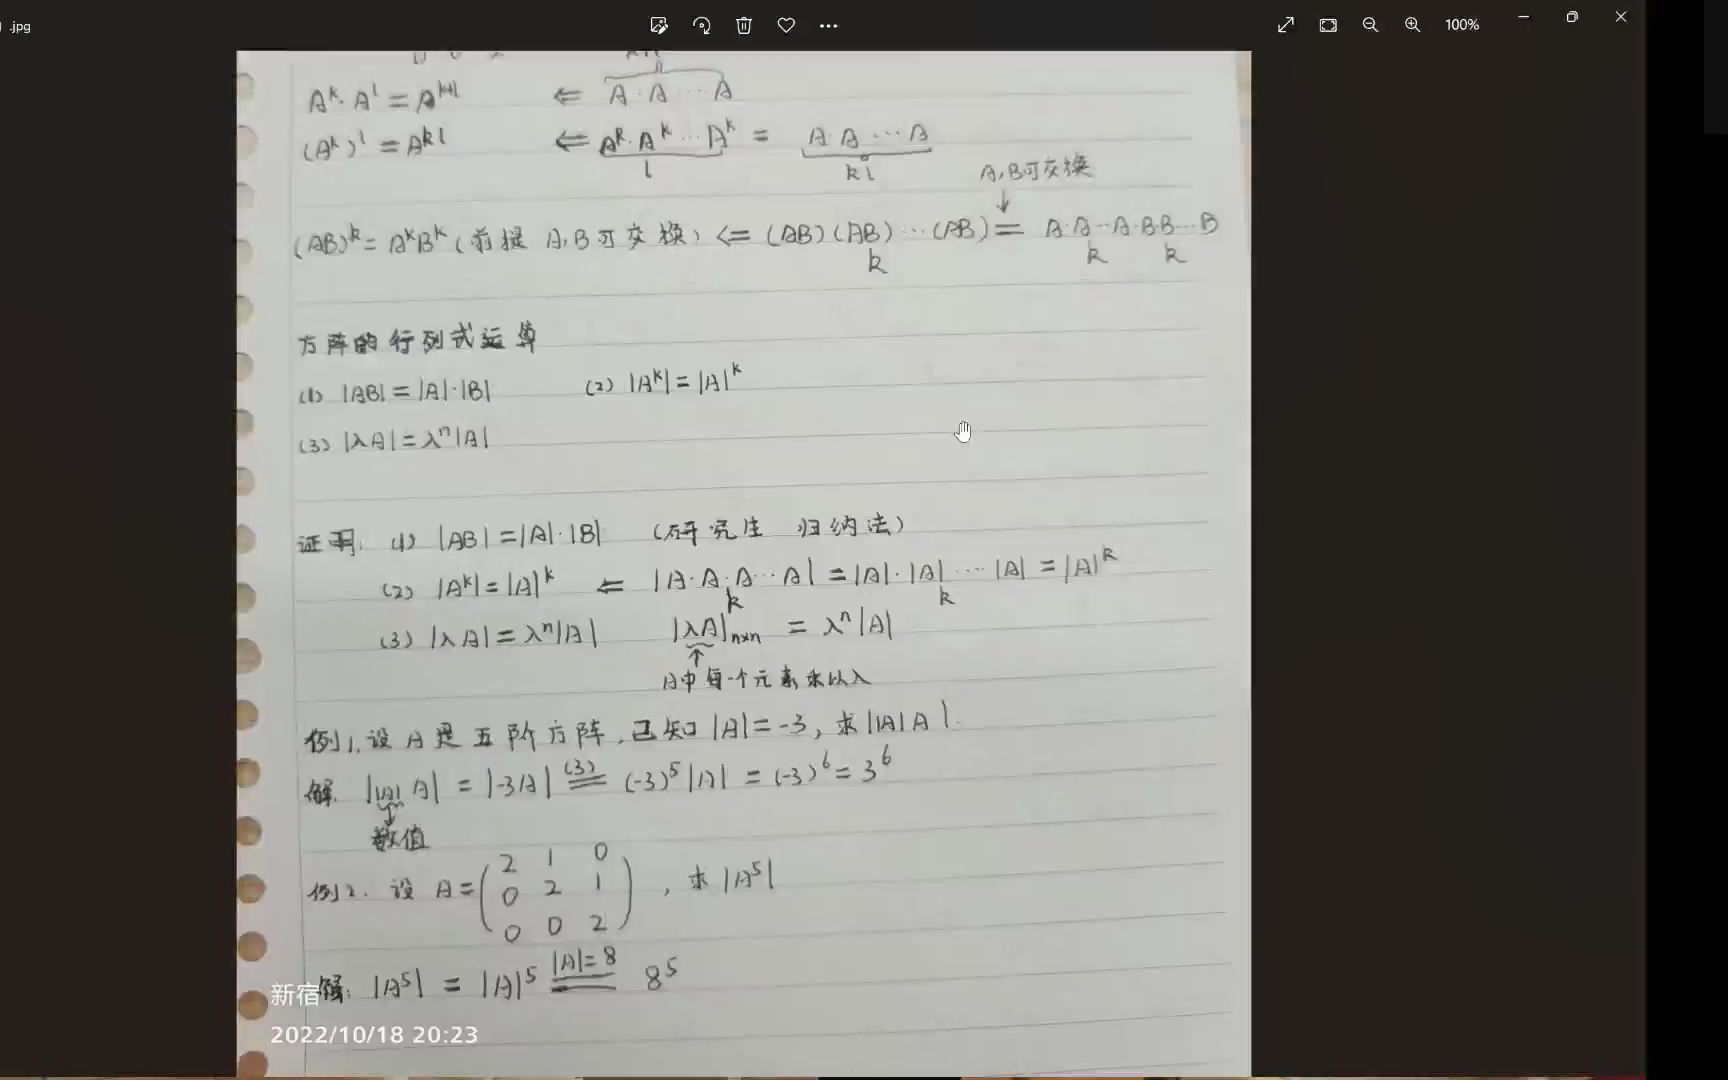 .jpg
100%
A^k · A^l = A^{k+l} ⇐ A · A ⋯ A
(A^k)^l = A^{kl} ⇐ A^k · A^k ⋯ A^k = A · A ⋯ A
l kl A,B可交换
↓
(AB)^k = A^kB^k (前提 A,B可交换) ⇐ (AB)(AB)⋯(AB) = A·A⋯A·B·B⋯B
k k k
方阵的行列式运算
(1) |AB| = |A|·|B| (2) |A^k| = |A|^k
(3) |λA| = λ^n|A|
证明: (1) |AB| = |A|·|B| (研究生 归纳法)
(2) |A^k| = |A|^k ⇐ |A·A·A⋯A| = |A|·|A|⋯|A| = |A|^k
k k
(3) |λA| = λ^n|A| |λA|_{n×n} = λ^n|A|
↑
A中每一个元素乘以λ
例1. 设A是五阶方阵, 已知|A| = -3, 求||A|A|.
解. ||A|A| = |-3A| (3) = (-3)^5|A| = (-3)^6 = 3^6
↓
数值
例2. 设 A = ( 2 1 0
0 2 1
0 0 2 ) , 求|A^5|
解: |A^5| = |A|^5 |A|=8 = 8^5
新宿
2022/10/18 20:23